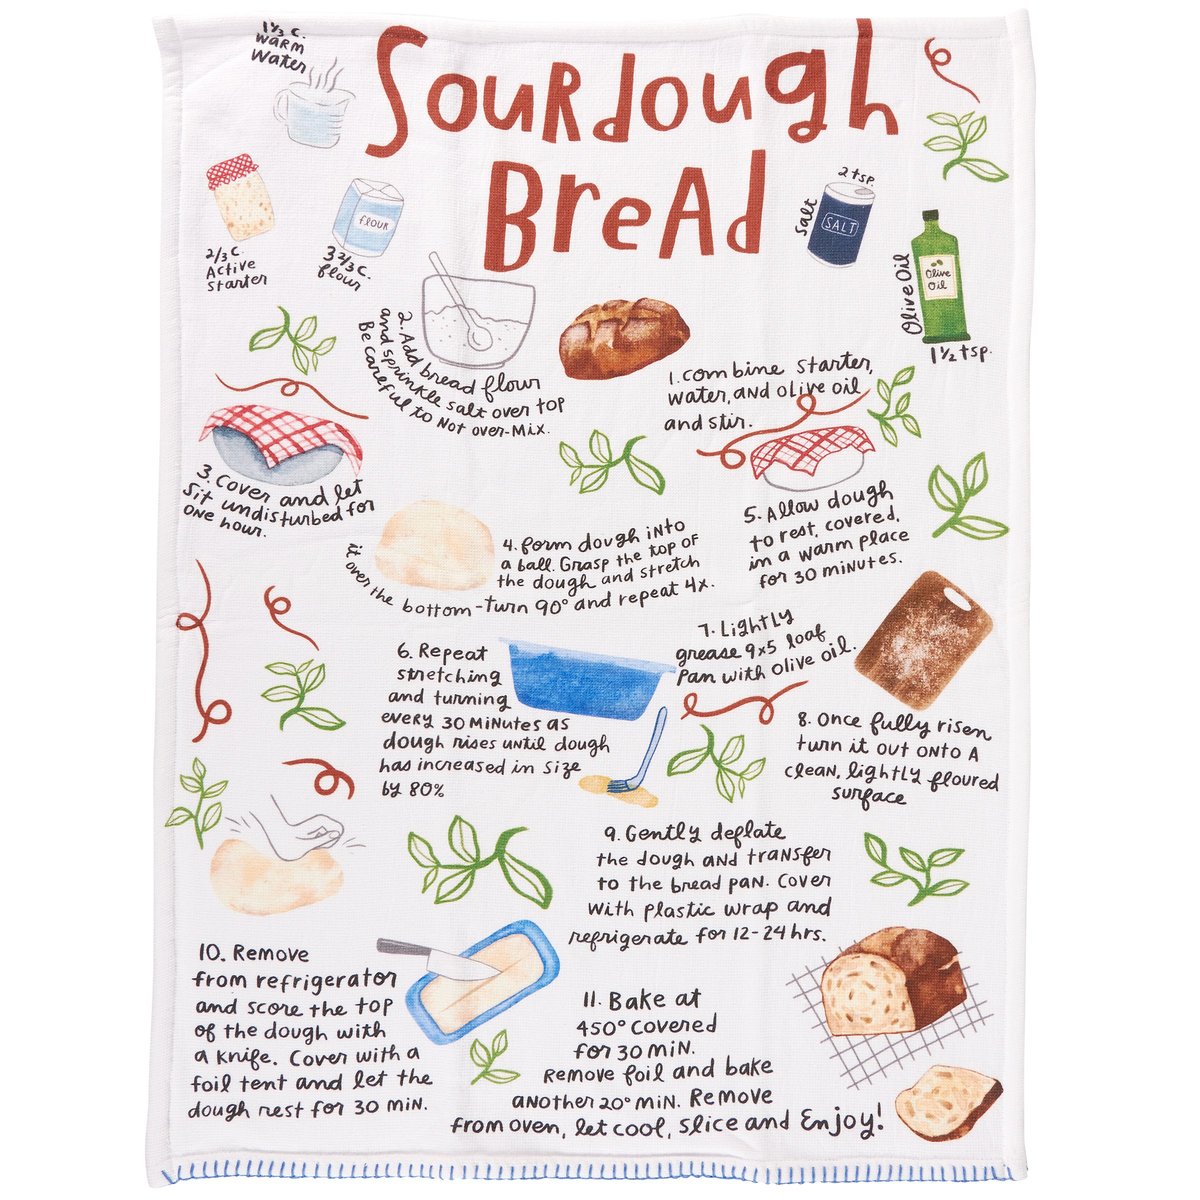 Sourdough
Bread
1 1/3 c.
warm
water
2/3 c.
Active
starter
flour
3 2/3 c.
flour
2 tsp.
salt
SALT
Olive Oil
Olive
Oil
1 1/2 tsp.
1. combine starter,
water, and olive oil
and stir.
2. Add bread flour
and sprinkle salt over top
Be careful to not over-mix.
3. Cover and let
sit undisturbed for
one hour.
4. form dough into
a ball. Grasp the top of
the dough and stretch
it over the bottom - turn 90° and repeat 4x.
5. Allow dough
to rest, covered,
in a warm place
for 30 minutes.
6. Repeat
stretching
and turning
every 30 minutes as
dough rises until dough
has increased in size
by 80%
7. Lightly
grease 9x5 loaf
pan with olive oil.
8. Once fully risen
turn it out onto a
clean, lightly floured
surface
9. Gently deflate
the dough and transfer
to the bread pan. Cover
with plastic wrap and
refrigerate for 12-24 hrs.
10. Remove
from refrigerator
and score the top
of the dough with
a knife. Cover with a
foil tent and let the
dough rest for 30 min.
11. Bake at
450° covered
for 30 min.
Remove foil and bake
another 20° min. Remove
from oven, let cool, slice and Enjoy!